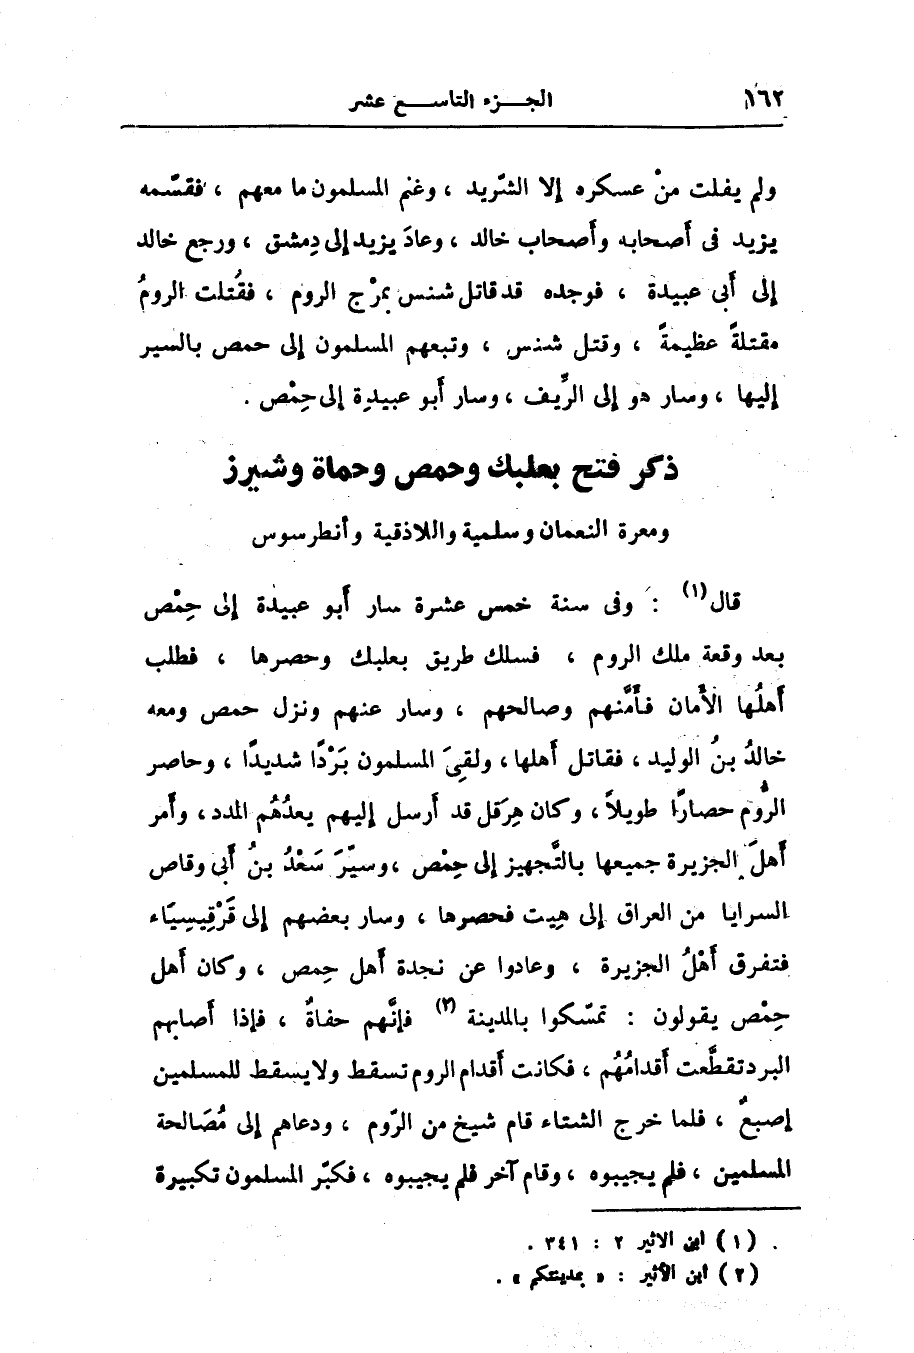 ١٦٢ الجزء التاسع عشر
ولم يفلت منْ عسكره إلا الشّريد ، وغنم المسلمون ما معهم ، فقسّمه
يزيد فى أصحابه وأصحاب خالد ، وعادَ يزيد إلى دِمشق ، ورجع خالد
إلى أبى عبيدة ، فوجده قد قاتل شنس بمرْج الروم ، فقُتلت الرومُ
مقتلةً عظيمةً ، وقتل شنس ، وتبعهم المسلمون إلى حمص بالسير
إليها ، وسار هو إلى الرِّيف ، وسار أبو عبيدة إلى حِمْص .
ذكر فتح بعلبك وحمص وحماة وشيرز
ومعرة النعمان وسلمية واللاذقية وأنطرسوس
قال(١) : وفى سنة خمس عشرة سار أبو عبيدة إلى حِمْص
بعد وقعة ملك الروم ، فسلك طريق بعلبك وحصرها ، فطلب
أهلُها الأمان فأمَّنهم وصالحهم ، وسار عنهم ونزل حمص ومعه
خالدُ بنُ الوليد ، فقاتل أهلها ، ولقىَ المسلمون بَرْدًا شديدًا ، وحاصر
الرُّوم حصارًا طويلاً ، وكان هِرَقل قد أرسل إليهم يعدُهُم المدد ، وأمر
أهلَ الجزيرة جميعها بالتَّجهيز إلى حِمْص ، وسيّرَ سَعْدُ بنُ أبى وقاص
السرايا من العراق إلى هِيت فحصروها ، وسار بعضهم إلى قَرْقِيسِيَاء
فتفرق أهْلُ الجزيرة ، وعادوا عن نجدة أهل حِمص ، وكان أهل
حِمْص يقولون : تمسّكوا بالمدينة (٢) فإنَّهم حفاةٌ ، فإذا أصابهم
البرد تقطَّعت أقدامُهُم ، فكانت أقدام الروم تسقط ولا يسقط للمسلمين
إصبعٌ ، فلما خرج الشتاء قام شيخ من الرّوم ، ودعاهم إلى مُصَالحة
المسلمين ، فلم يجيبوه ، وقام آخر فلم يجيبوه ، فكبّر المسلمون تكبيرة
(١) ابن الاثير ٢ : ٣٤١ .
(٢) ابن الأثير : « بمدينتكم » .